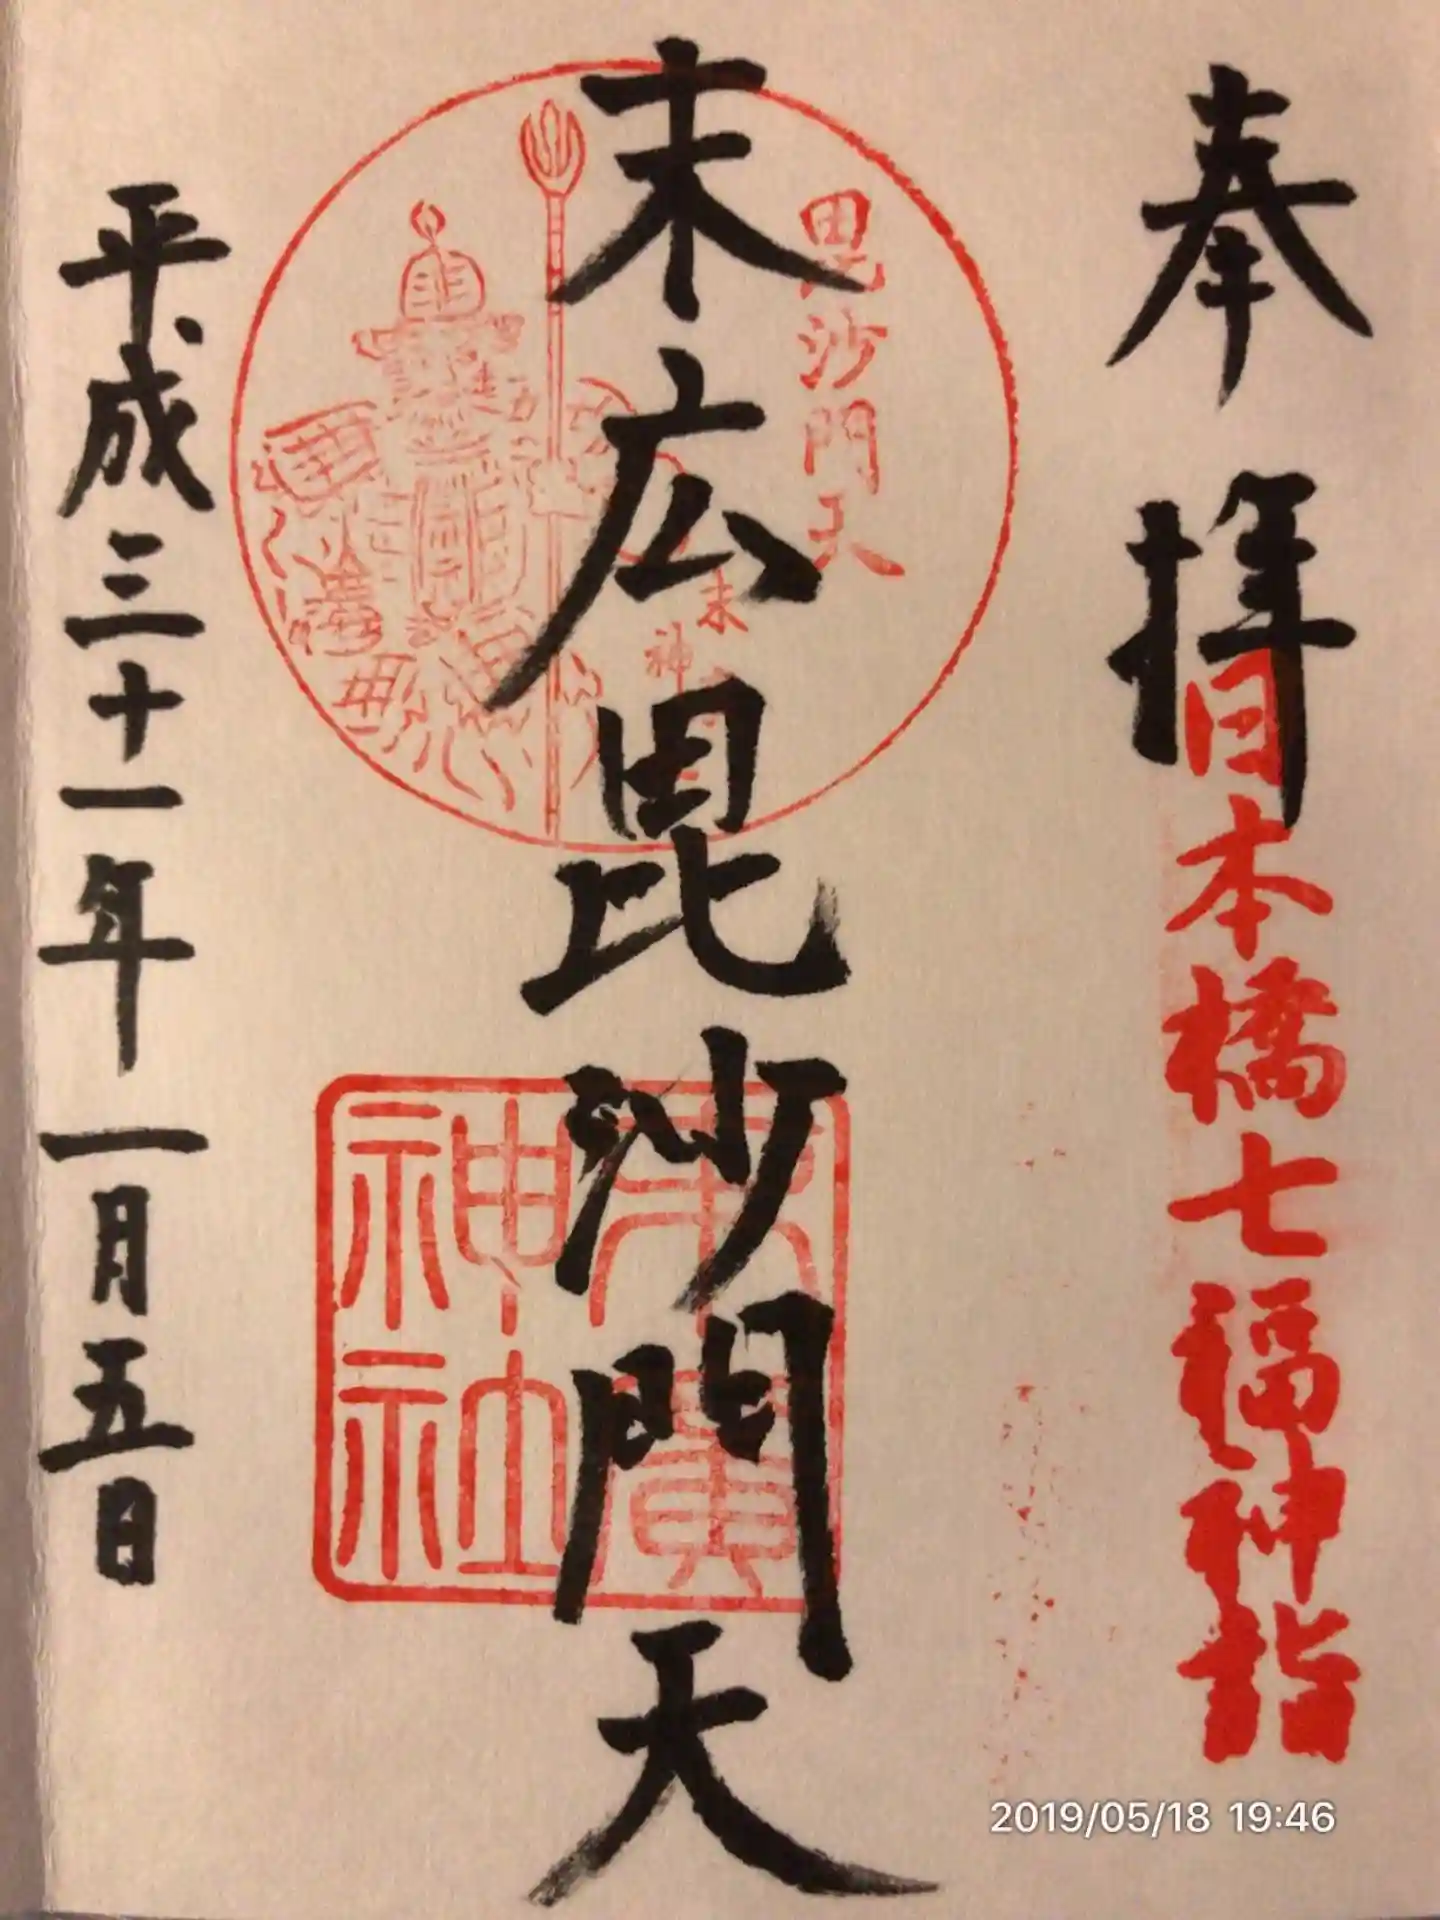 奉拝
日本橋七福神詣
毘沙門天
末広毘沙門天
末廣
神社
平成三十一年一月五日
2019/05/18 19:46